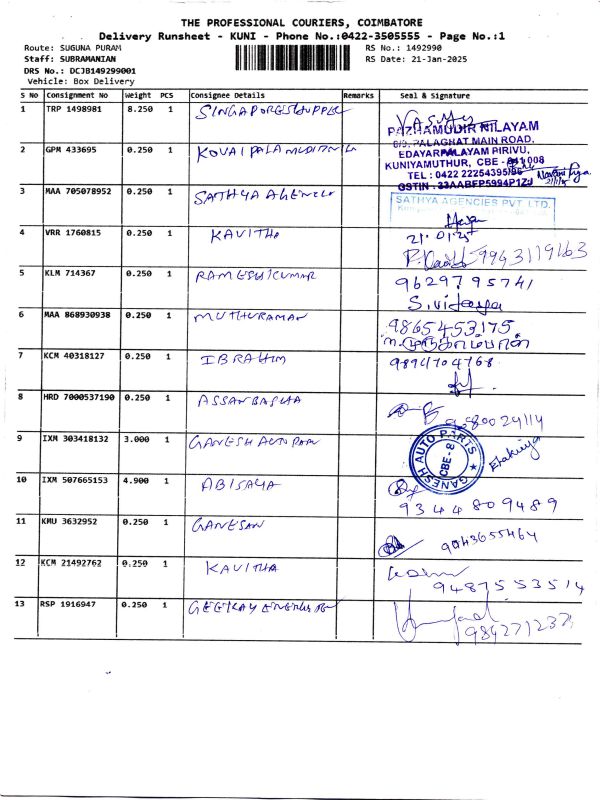 THE PROFESSIONAL COURIERS, COIMBATORE
Delivery Runsheet - KUNI - Phone No.:0422-3505555 - Page No.:1
Route: SUGUNA PURAM RS No.: 1492990
Staff: SUBRAMANIAN RS Date: 21-Jan-2025
DRS No.: DCJB149299001
Vehicle: Box Delivery
S No Consignment No Weight PCS Consignee Details Remarks Seal & Signature
1 TRP 1498981 8.250 1
PAZHAMUDIR NILAYAM
PALAGHAT MAIN ROAD,
EDAYARPALAYAM PIRIVU,
2 GPM 433695 0.250 1
KUNIYAMUTHUR, CBE - 641 008
TEL : 0422 22254395/96
GSTIN - 33AABFP5994P1ZJ
3 MAA 705078952 0.250 1 SATHYA
SATHYA AGENCIES PVT LTD.
21.01.25
4 VRR 1760815 0.250 1 KAVITHA 9943119163
5 KLM 714367 0.250 1 RAMESHKUMAR 9629795741
6 MAA 868930938 0.250 1 MUTHURAMAN 9865453175
7 KCM 40318127 0.250 1 IBRAHIM 9894704768
8 HRD 7000537190 0.250 1 ASSANBASHA
9 IXM 303418132 3.000 1 GANESH AUTO
GANESH AUTO PARTS
CBE - 8
10 IXM 507665153 4.900 1 ABISAYA 9344809489
11 KMU 3632952 0.250 1 GANESAN 9043655464
12 KCM 21492762 0.250 1 KAVITHA 9487553514
13 RSP 1916947 0.250 1 GEEKAY